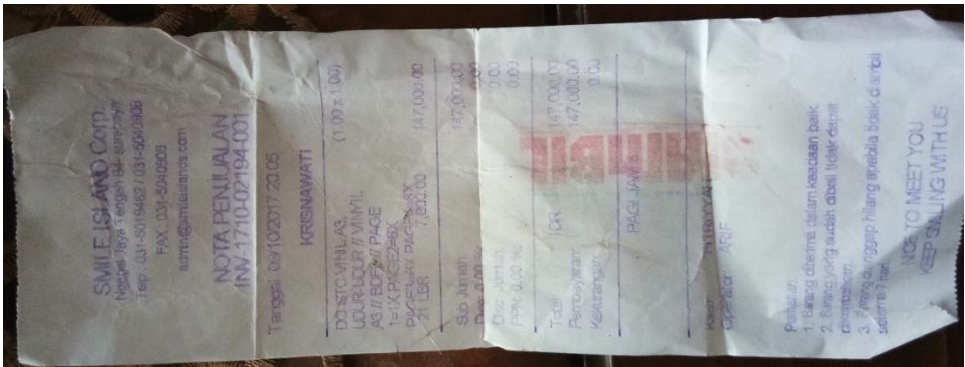 SMILE ISLAND Corp.
Nginden Raya Tengah 84 surabaya
Telp : 031-5019462 / 031-5040908
FAX. 031-5040908
admin@smileislands.com
NOTA PENJUALAN
INV-1710-02194-001
Tanggal: 09/10/2017 20:05
KRISNAWATI
(1.00 x 1.00)
UDUR-UDUR // VINYIL
A3 // BDF // PAGE
1=1X PAGE2=6X
21 LBR 7,000.00 147,000.00
Sub Jumlah 147,000.00
Disc 0.00 % 0.00
Disc Jumlah 0.00
PPN 0.00 % 0.00
Total IDR 147,000.00
Pembayaran 147,000.00
Kekurangan 0.00
PAGI JAM 8
Kasir
Operator ARIF
Perhatian
1. Barang diterima dalam keadaan baik
2. Barang yang sudah dibeli tidak dapat
dikembalikan
3. Barang dianggap hilang apabila tidak diambil
selama 7 hari
NICE TO MEET YOU
KEEP SMILING WITH US